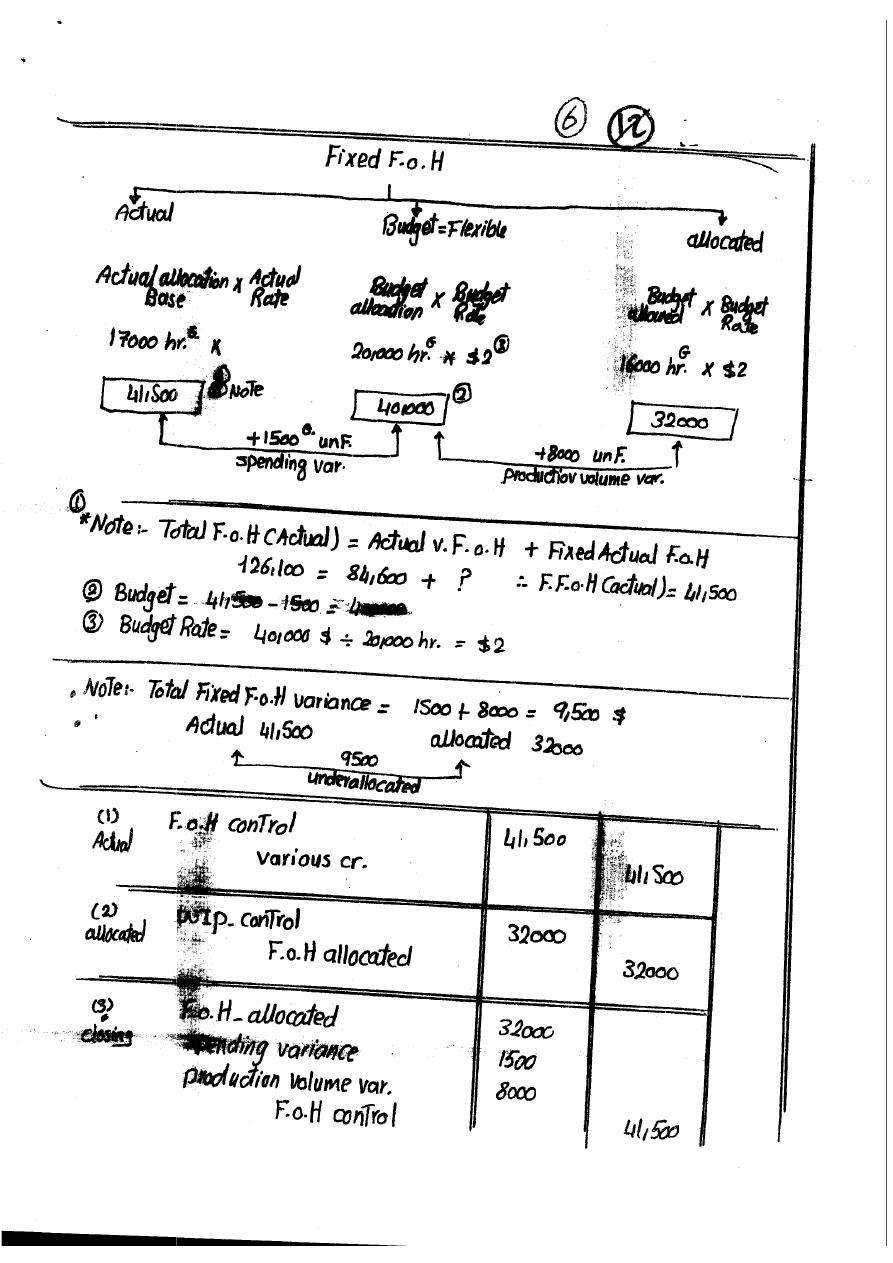 6 12
Fixed F.o.H
Actual Budget=Flexible allocated
Actual allocation Base x Actual Rate Budget allocation x Budget Rate Budget allowed x Budget Rate
17000 hr.G x 20,000 hr.G x $2 ③ 16000 hr.G x $2
41,500 Note 40,000 ② 32000
+1500 G. unF. +8000 unF.
spending var. production volume var.
①
*Note:- Total F.o.H (Actual) = Actual v.F.o.H + Fixed Actual F.o.H
126,100 = 84,600 + ? ∴ F.F.o.H (actual) = 41,500
② Budget = 41,500 - 1500 =
③ Budget Rate = 40,000 $ ÷ 20,000 hr. = $2
. Note:- Total Fixed F.o.H variance = 1500 + 8000 = 9,500 $
Actual 41,500 allocated 32000
9500
underallocated
(1) F.o.H control 41,500
Actual various cr. 41,500
(2) WIP-control 32000
allocated F.o.H allocated 32000
(3) F.o.H-allocated 32000
closing spending variance 1500
production volume var. 8000
F.o.H control 41,500